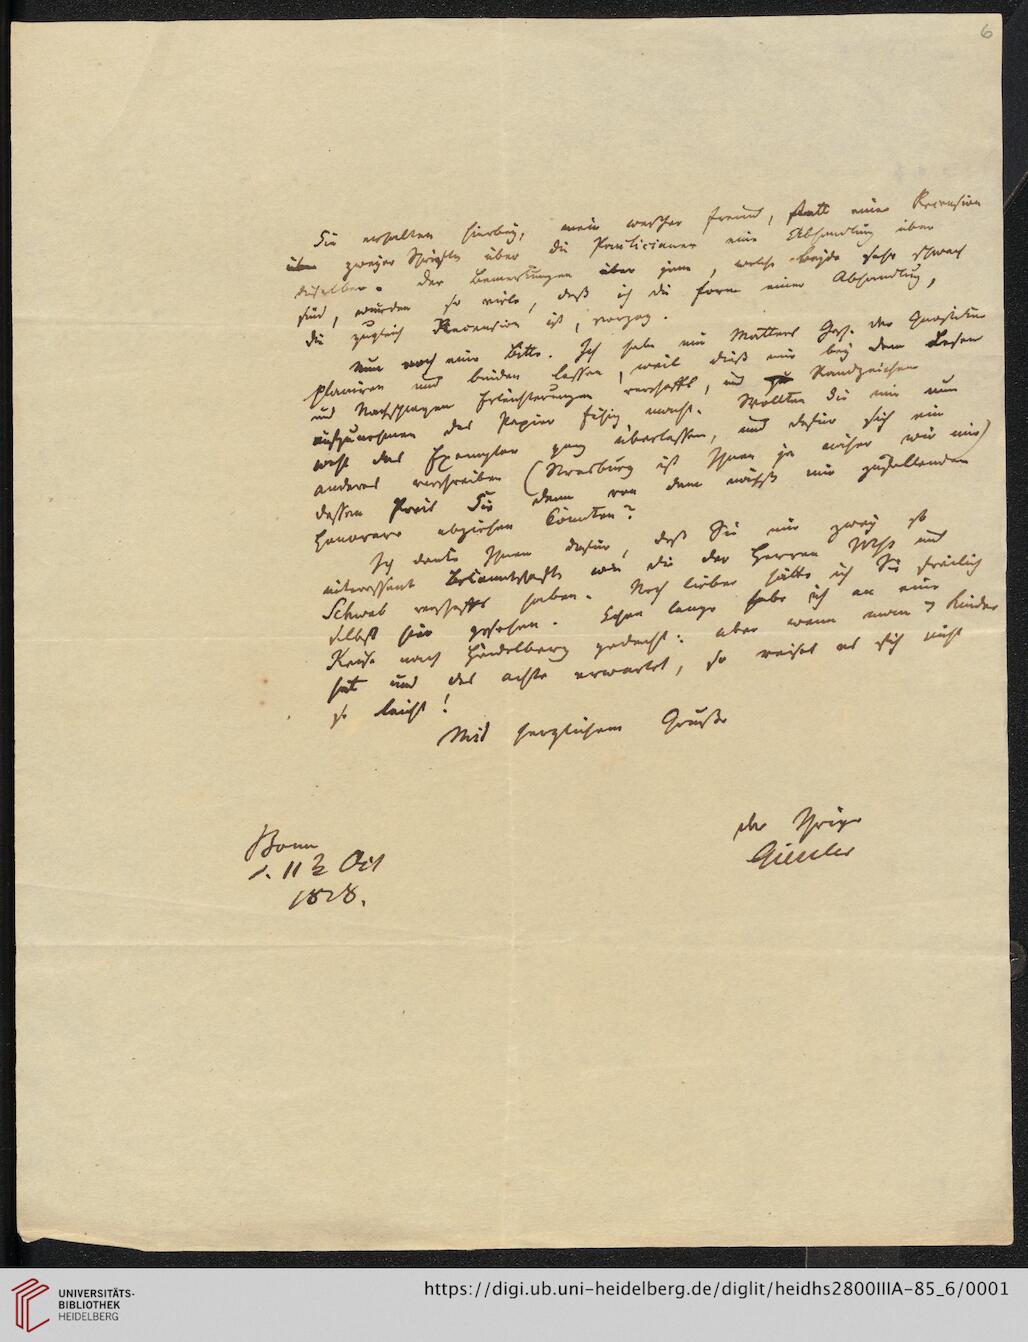 6
Sie erhalten hierbey, mein werther Freund, statt einer Recension
zweyer Schriften über die Paulicianer eine Abhandlung über
dieselben. Der Bemerkungen über jene, welche beyde sehr schwach
sind, wurden so viele, daß ich die Form einer Abhandlung,
die zugleich Recension ist, vorzog.
Nun noch eine Bitte. Ich habe mir Matters Gesch. der Gnostiker
planiren und binden lassen, weil dieß mir bey dem Lesen
und Nachschlagen Erleichterungen verschafft, und Randzeichen
aufzunehmen das Papier fähig macht. Wollten Sie mir nun
wohl das Exemplar ganz überlassen, und dafür sich ein
anderes verschreiben (Strasburg ist Ihnen ja näher wie mir)
dessen Preis Sie dann von dem nächst mir zustellenden
Honorare abziehen könnten?
Ich danke Ihnen dafür, daß Sie mir zwey so
interessante Bekanntschaften wie die der Herren und
Schwab verschafft haben. Noch lieber hätte ich Sie freilich
selbst hier gesehen. Schon lange habe ich an eine
Reise nach Heidelberg gedacht: aber wenn man 7 Kinder
hat und das achte erwartet, so reiset es sich nicht
so leicht!
Mit herzlichem Gruße
der Ihrige
Gieseler
Bonn
d. 11 Oct
1828.
UNIVERSITÄTS-
BIBLIOTHEK
HEIDELBERG
https://digi.ub.uni-heidelberg.de/diglit/heidhs2800IIIA-85_6/0001